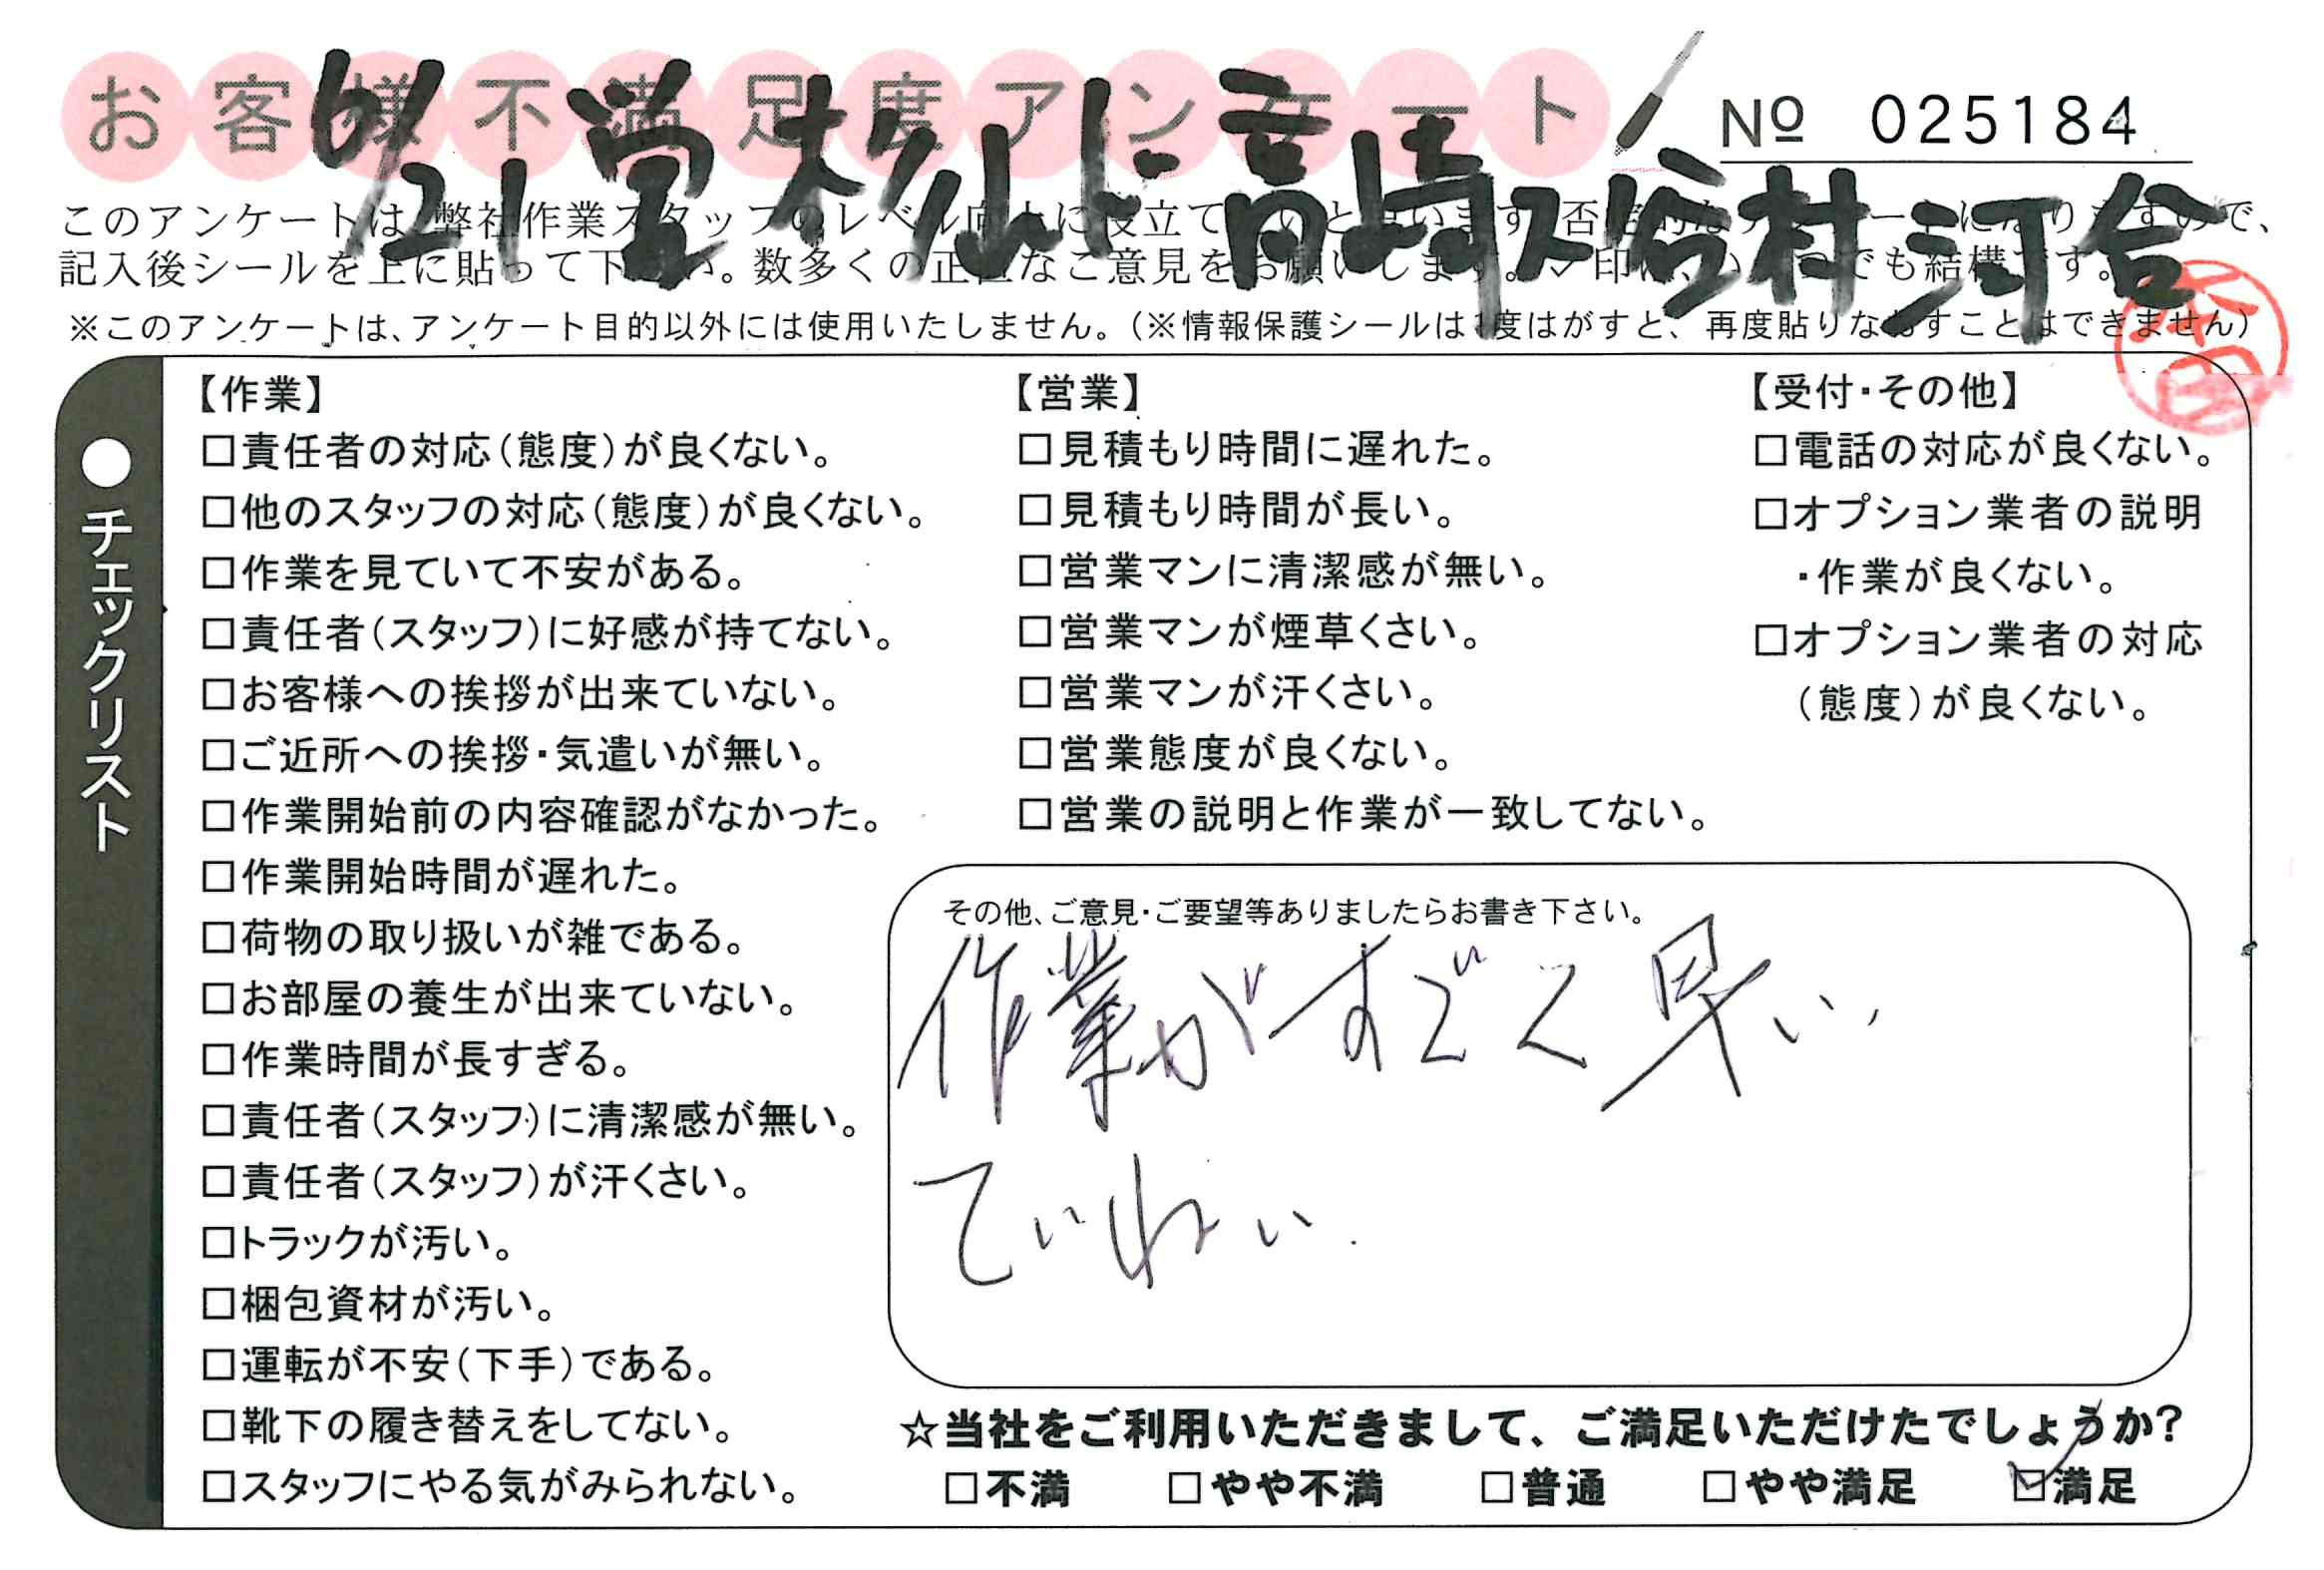 お客様不満足度アンケート
№ 025184
6/21 営 杉山ト 高崎 又谷村 河合
このアンケートは、弊社作業スタッフのレベル向上に役立て
記入後シールを上に貼って下さい。数多くの正直なご意見をお願いします。✓印は、いくつでも結構です。
※このアンケートは、アンケート目的以外には使用いたしません。(※情報保護シールは1度はがすと、再度貼りなおすことはできません)
●チェックリスト
【作業】
□責任者の対応(態度)が良くない。
□他のスタッフの対応(態度)が良くない。
□作業を見ていて不安がある。
□責任者(スタッフ)に好感が持てない。
□お客様への挨拶が出来ていない。
□ご近所への挨拶・気遣いが無い。
□作業開始前の内容確認がなかった。
□作業開始時間が遅れた。
□荷物の取り扱いが雑である。
□お部屋の養生が出来ていない。
□作業時間が長すぎる。
□責任者(スタッフ)に清潔感が無い。
□責任者(スタッフ)が汗くさい。
□トラックが汚い。
□梱包資材が汚い。
□運転が不安(下手)である。
□靴下の履き替えをしてない。
□スタッフにやる気がみられない。
【営業】
□見積もり時間に遅れた。
□見積もり時間が長い。
□営業マンに清潔感が無い。
□営業マンが煙草くさい。
□営業マンが汗くさい。
□営業態度が良くない。
□営業の説明と作業が一致してない。
【受付・その他】
□電話の対応が良くない。
□オプション業者の説明
・作業が良くない。
□オプション業者の対応
(態度)が良くない。
その他、ご意見・ご要望等ありましたらお書き下さい。
作業がすごく早い、
ていねい.
☆当社をご利用いただきまして、ご満足いただけたでしょうか?
□不満 □やや不満 □普通 □やや満足 ☑満足